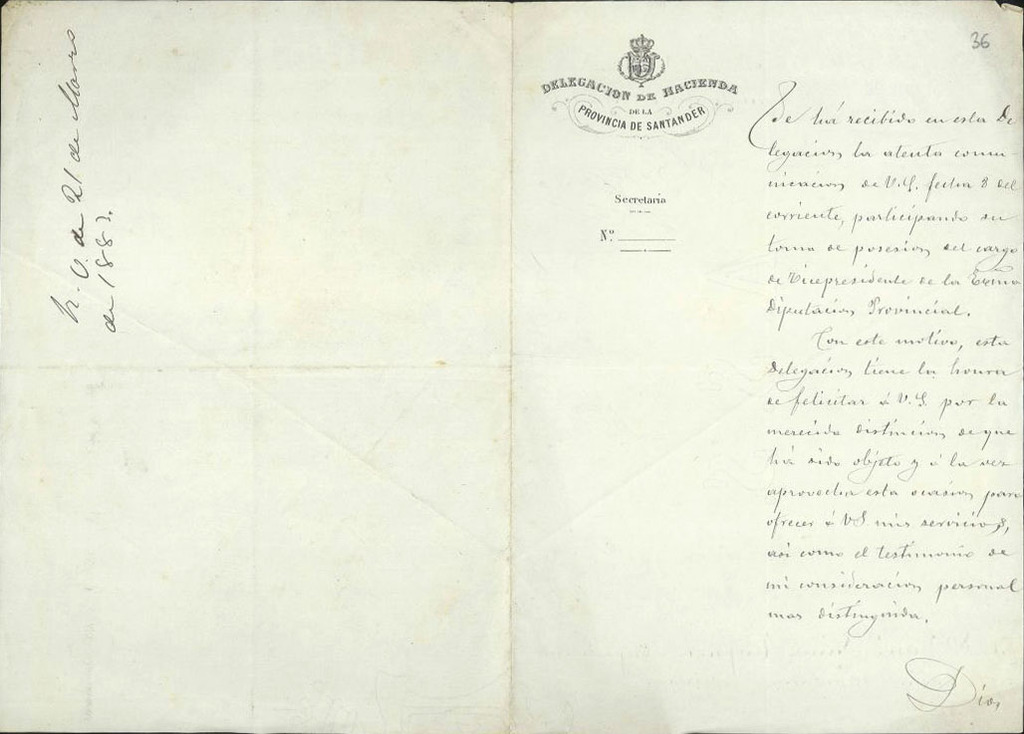 de 21 de Marzo
de 1883.
36
DELEGACION DE HACIENDA
DE LA
PROVINCIA DE SANTANDER
Secretaría
Nº.
Se há recibido en esta De
legacion la atenta comu-
nicacion de V.S. fecha 8 del
corriente, participando su
toma de posesion del cargo
de Vicepresidente de la Exma
Diputacion Provincial.
Con este motivo, esta
Delegacion tiene la honra
de felicitar á V.S. por la
merecida distincion de que
há sido objeto y á la vez
aprovecha esta ocasion para
ofrecer á VS mis servicios,
asi como el testimonio de
mi consideracion personal
mas distinguida.
Dios